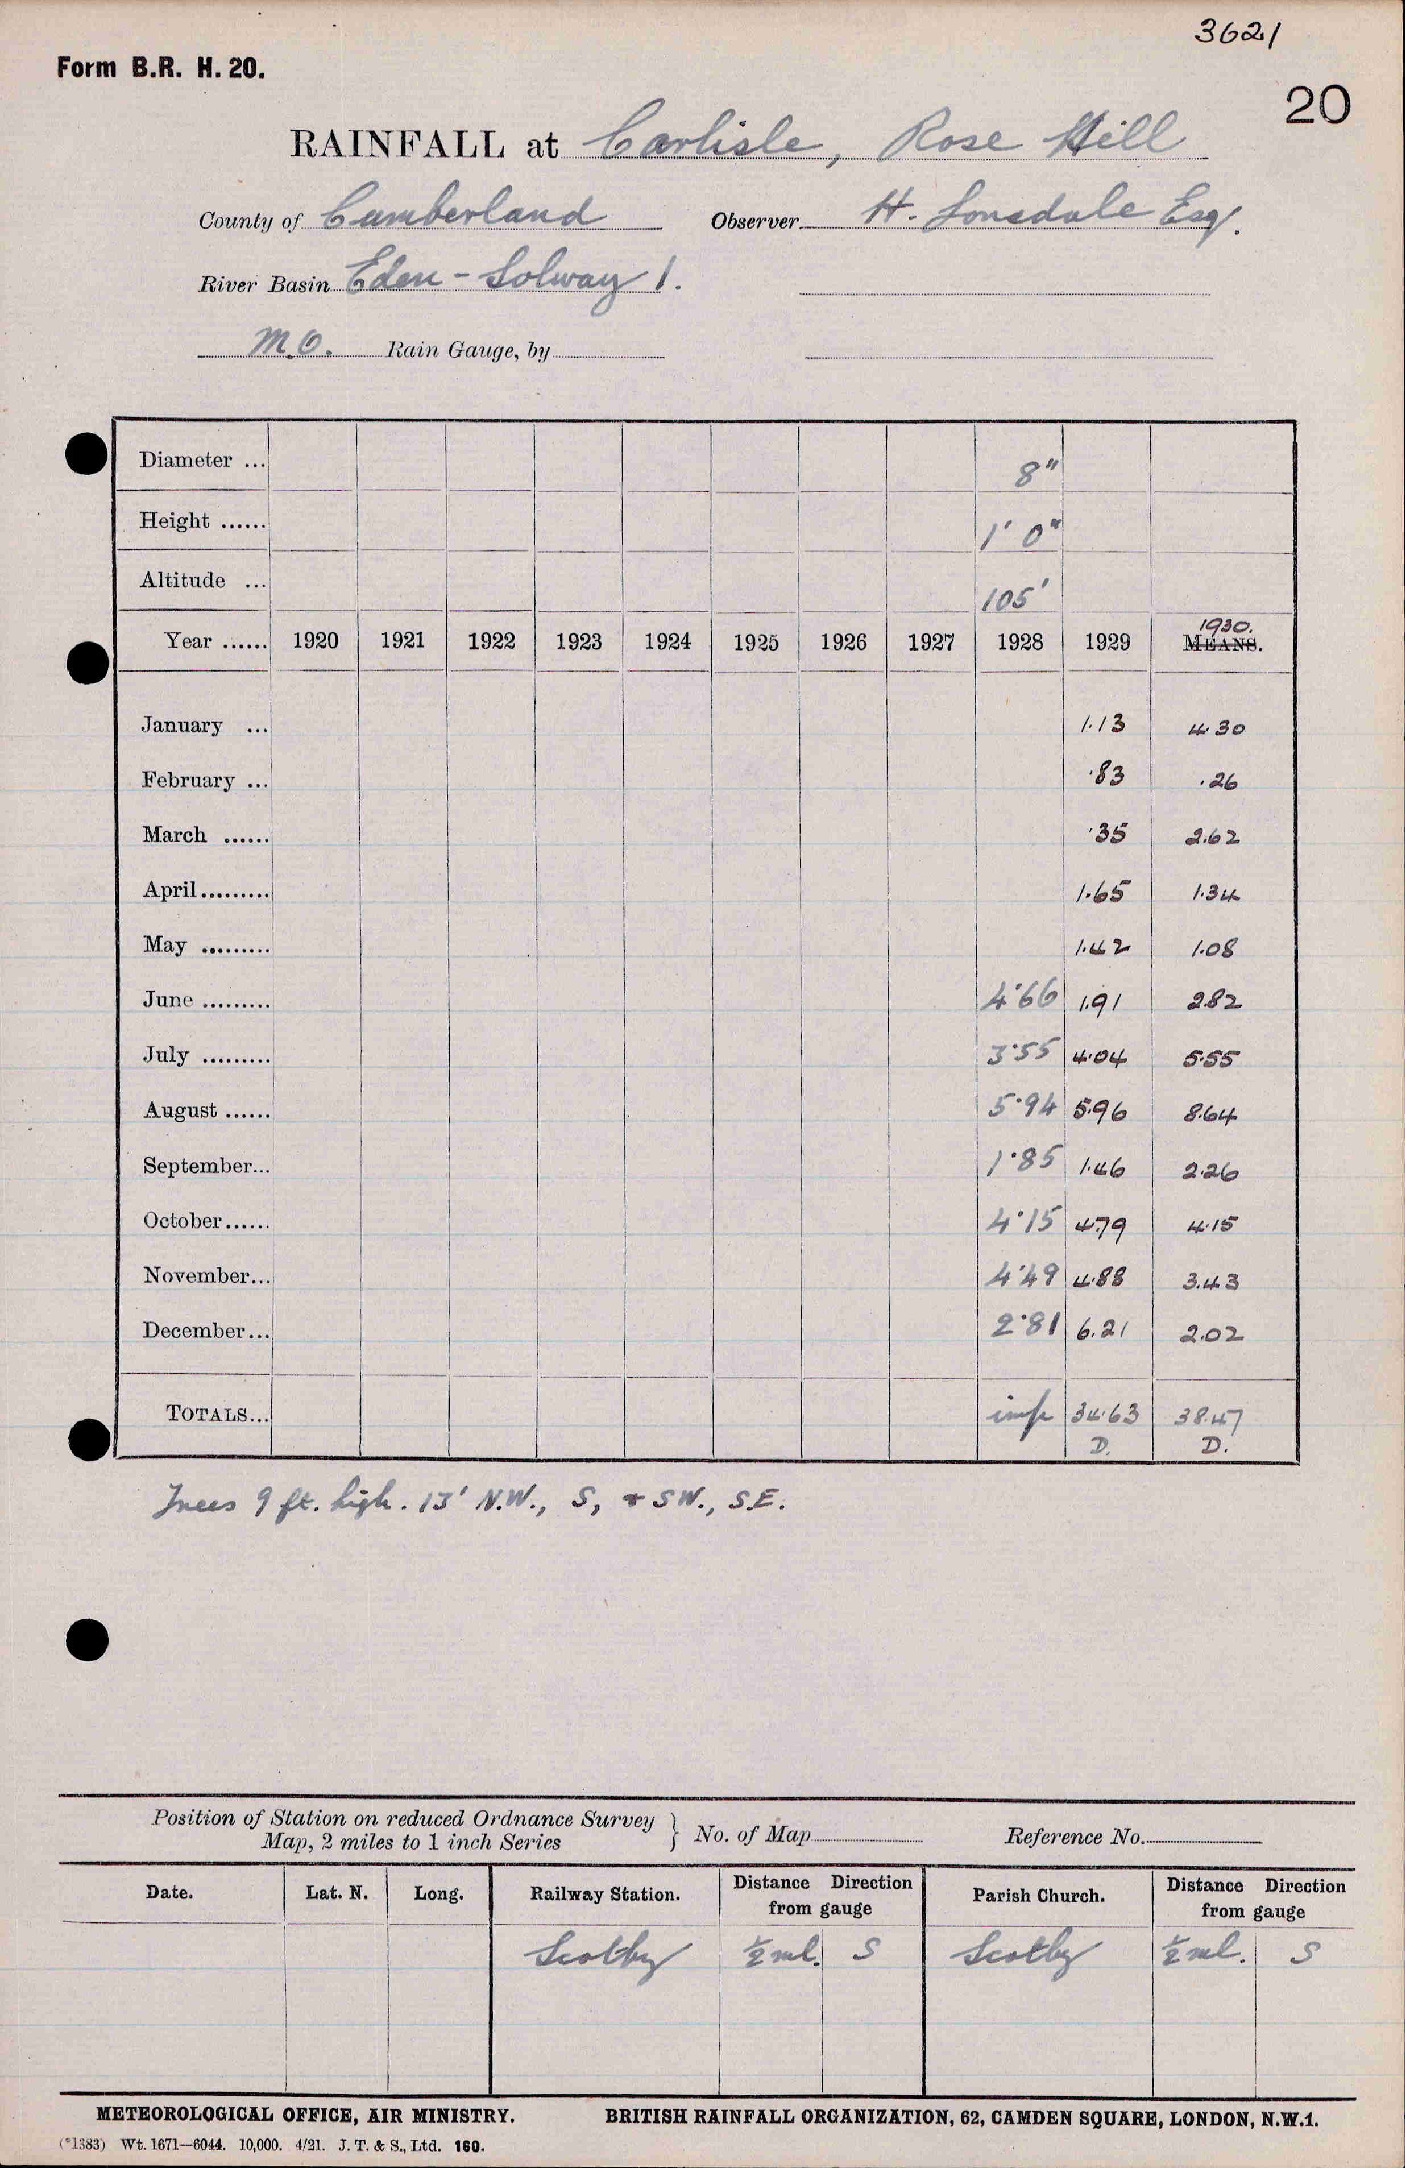 3621
Form B.R. H. 20.
20
RAINFALL at Carlisle, Rose Hill
County of Cumberland Observer H. Lonsdale Esq.
River Basin Eden - Solway 1.
M.O. Rain Gauge, by
Diameter ... 8"
Height ...... 1' 0"
Altitude ... 105'
1930.
Year ...... 1920 1921 1922 1923 1924 1925 1926 1927 1928 1929 MEANS.
January ... 1.13 4.30
February ... .83 .26
March ...... .35 2.62
April......... 1.65 1.34
May ......... 1.42 1.08
June ......... 4.66 1.91 2.82
July ......... 3.55 4.04 5.55
August ...... 5.94 5.96 8.64
September... 1.85 1.46 2.26
October...... 4.15 4.79 4.15
November... 4.49 4.88 3.43
December... 2.81 6.21 2.02
TOTALS... imp 34.63 38.47
D. D.
Trees 9 ft. high. 13' N.W., S, & SW., S.E.
Position of Station on reduced Ordnance Survey
Map, 2 miles to 1 inch Series } No. of Map Reference No.
Date. Lat. N. Long. Railway Station. Distance Direction from gauge Parish Church. Distance Direction from gauge
Scotby ½ ml. S Scotby ½ ml. S
METEOROLOGICAL OFFICE, AIR MINISTRY. BRITISH RAINFALL ORGANIZATION, 62, CAMDEN SQUARE, LONDON, N.W.1.
(*1383) Wt. 1671—6044. 10,000. 4/21. J. T. & S., Ltd. 160.